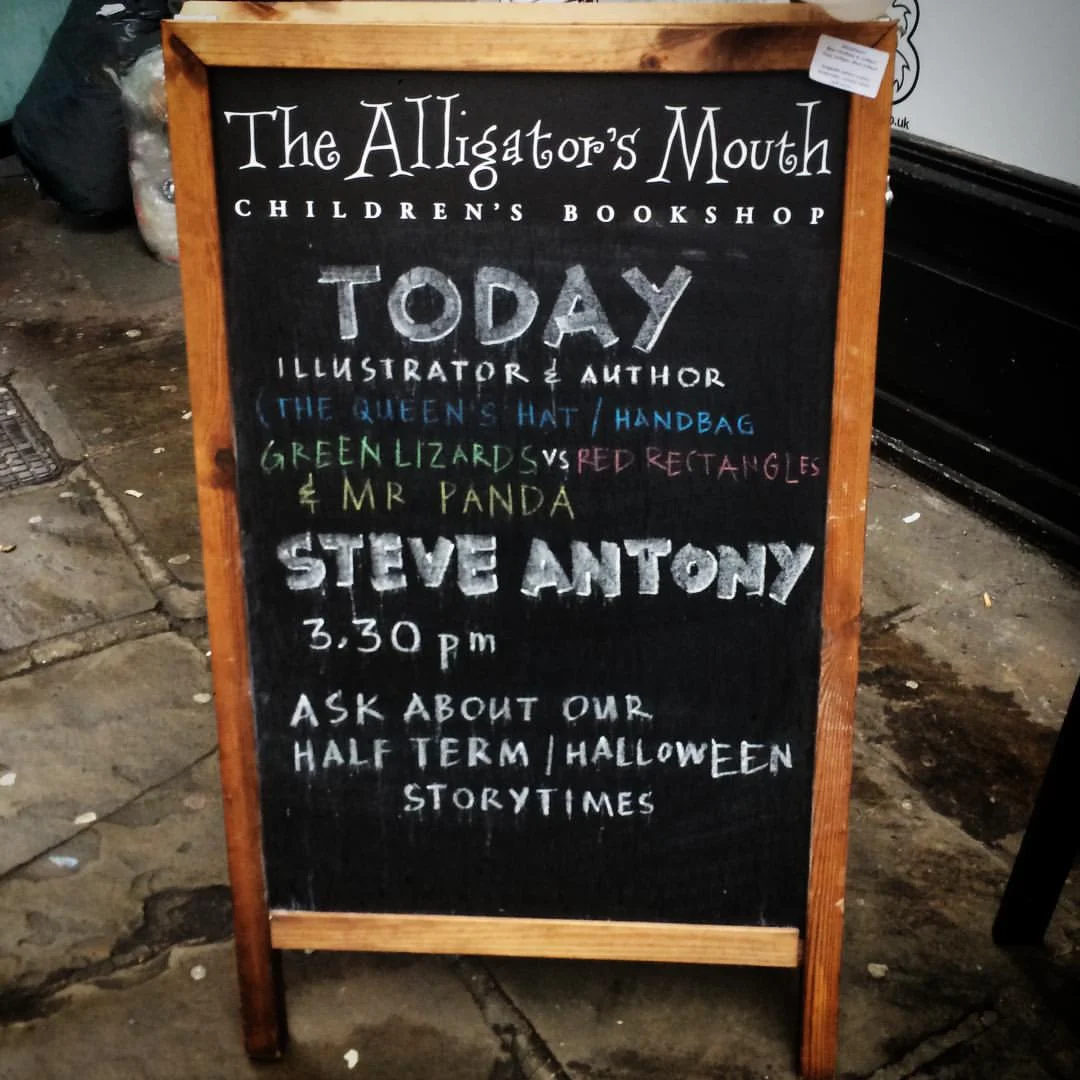 The Alligator's Mouth
CHILDREN'S BOOKSHOP
TODAY
ILLUSTRATOR & AUTHOR
(THE QUEEN'S HAT / HANDBAG
GREEN LIZARDS VS RED RECTANGLES
& MR PANDA
STEVE ANTONY
3.30 pm
ASK ABOUT OUR
HALF TERM / HALLOWEEN
STORYTIMES